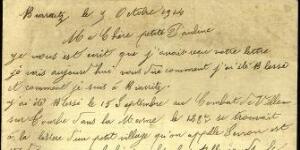 Biarritz, le 7 Octobre 1914
Ma Chère petite Pauline
je vous est écrit que j'avais reçu votre lettre
je vais aujourd'hui vous dire comment j'ai été Blessé
et comment je suis à Biarritz
j'ai été Blessé le 15 Septembre au Combat de Ville
sur Tourbe dans la Marne le 128? se trouvait
à la lisière d'un petit village qu'on appelle est